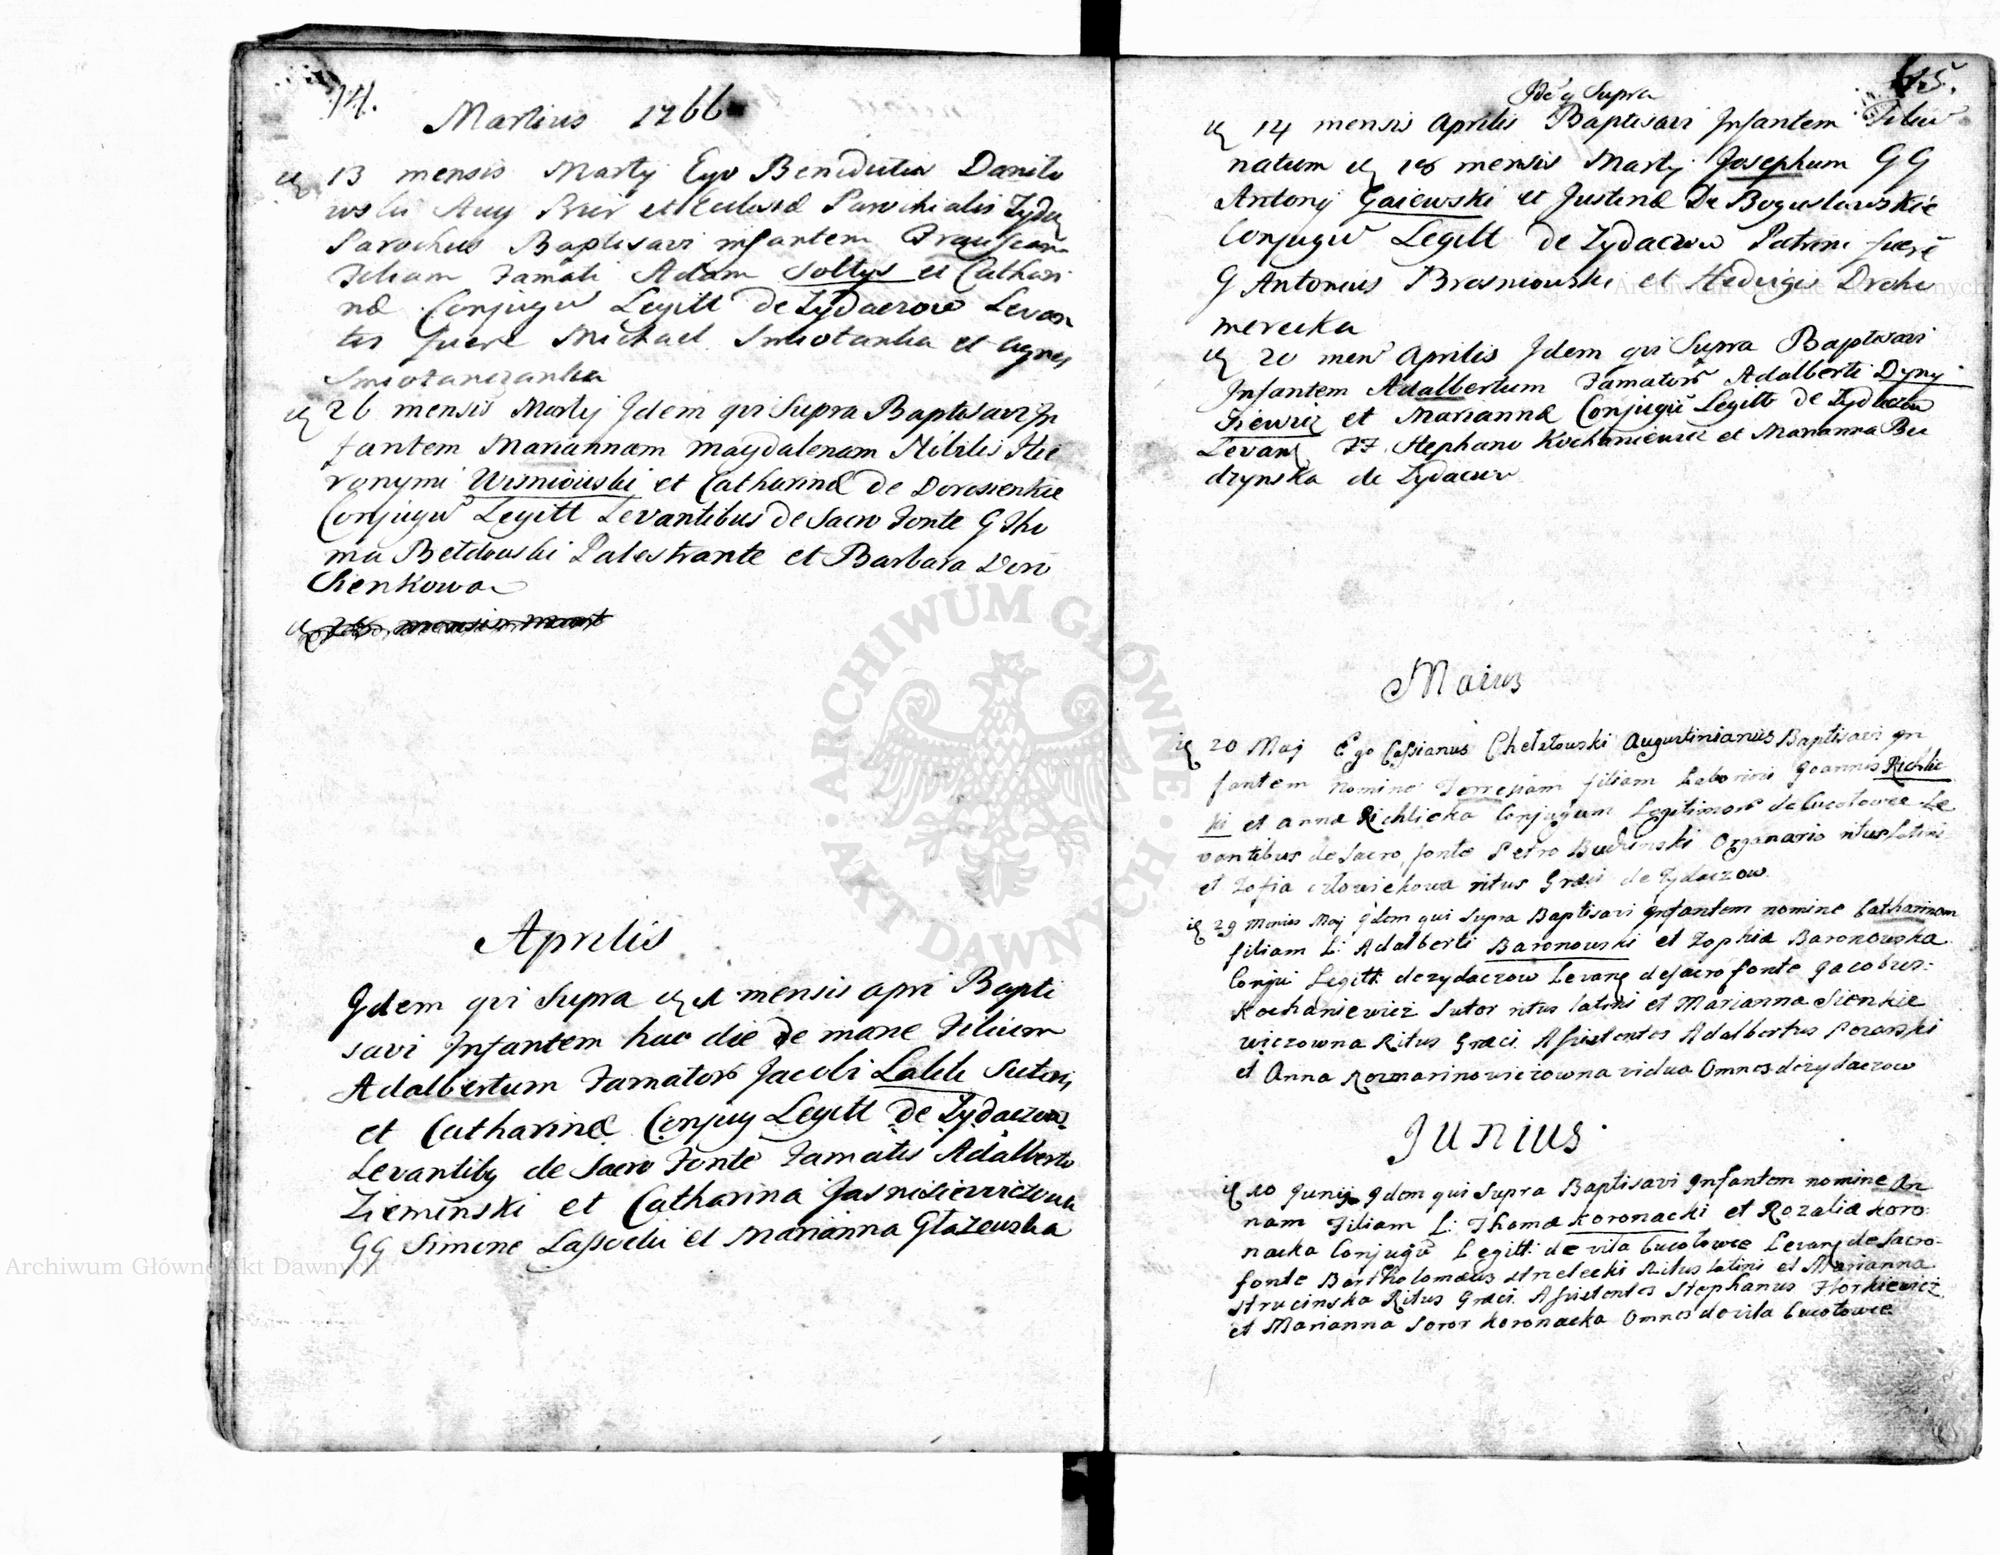 14.
Martius 1766
13 mensis Martij Ego Benedictus Danilo
wski Aug Prior et Ecclesiæ Parochialis Zyda
Parochus Baptisavi infantem Franciscam
Filiam Famati Adam Soltys et Cathari
næ Conjugū Legitt de Zydaczow Levan
tes fuere Michael Smiotanka et Agnes
Smiotanczanka
26 mensis Martij Idem qvi Supra Baptisavi In
fantem Mariannam Magdalenam Nibilis Hie
ronymi Wisniowski et Catharinæ de Dorosienkie
Conjugū Legitt Levantibus de Sacro Fonte G Tho
ma Betdowski Palestrante et Barbara Doro
sienkowa
26 mensis Mart
Aprilis
Idem qvi Supra 1 mensis apri Bapti
savi Infantem hac die de mane Filium
Adalbertum Famator Jacobi Lalik Sutoris
et Catharinæ Conjug Legitt de Zydaczow
Levantibg de Sacro Fonte Famatis Adalberto
Zieminski et Catharina Jasnisiewiczowa
GG Simone Lassocki et Marianna Głazewska
15.
Idē q Supra
14 mensis Aprilis Baptisavi Infantem Filiū
natum 18 mensis Martij Josephum GG
Antonij Gaiewski et Justinæ De Boguslawskie
Conjugū Legitt de Zydaczow Patrini fuerē
G Antonius Brosniowski et Hedvigis Droho
merecka
20 men Aprilis Idem qvi Supra Baptisavi
Infantem Adalbertum Famator Adalberti Dyny
siewicz et Mariannæ Conjugū Legitt de Zydaczow
Levang FF Stephano Kochaniewicz et Marianna Bu
dzynska de Zydaczow
Maius
20 Maj Ego Cassianus Chelstowski Augustinianus Baptisavi In
fantem nomine Terresiam filiam Laboriosi Joannis Richlic
ki et Annæ Richlicka Conjugum Legitimor de Cucołowce Le
vantibus de Sacro fonte Petro Budzinski Organario ritus Latini
et Zofia człowiekowa ritus Græci de Zydaczow.
29 Mensis Maj Idem qui Supra Baptisavi Infantem nomine Catharinam
filiam L: Adalberti Baronowski et Zophiæ Baronowska
Conju Legitt: de zydaczow Levang de sacro fonte Jacobus:
Kochaniewicz Sutor ritus latini et Marianna Sienkie
wiczowna Ritus Græci Assistentes Adalbertus Pozarski
et Anna Rozmarinowiczowna vidua Omnes de zydaczow
Junius.
10 Junij Idem qui Supra Baptisavi Infantem nomine An
nam Filiam L: Thomæ Koronacki et Rozaliæ Koro:
nacka Conjugū Legitt: de vila Cucołowce Levang de Sacro:
fonte Bartholomæus Strzelecki Ritus latini et Marianna
Strucinska Ritus Græci. Assistentes Stephanus Florkiewicz
et Marianna Soror Koronacka Omnes de vila Cucołowce
ARCHIWUM GŁÓWNE AKT DAWNYCH
Archiwum Główne Akt Dawnych
Archiwum Główne Akt Dawnych